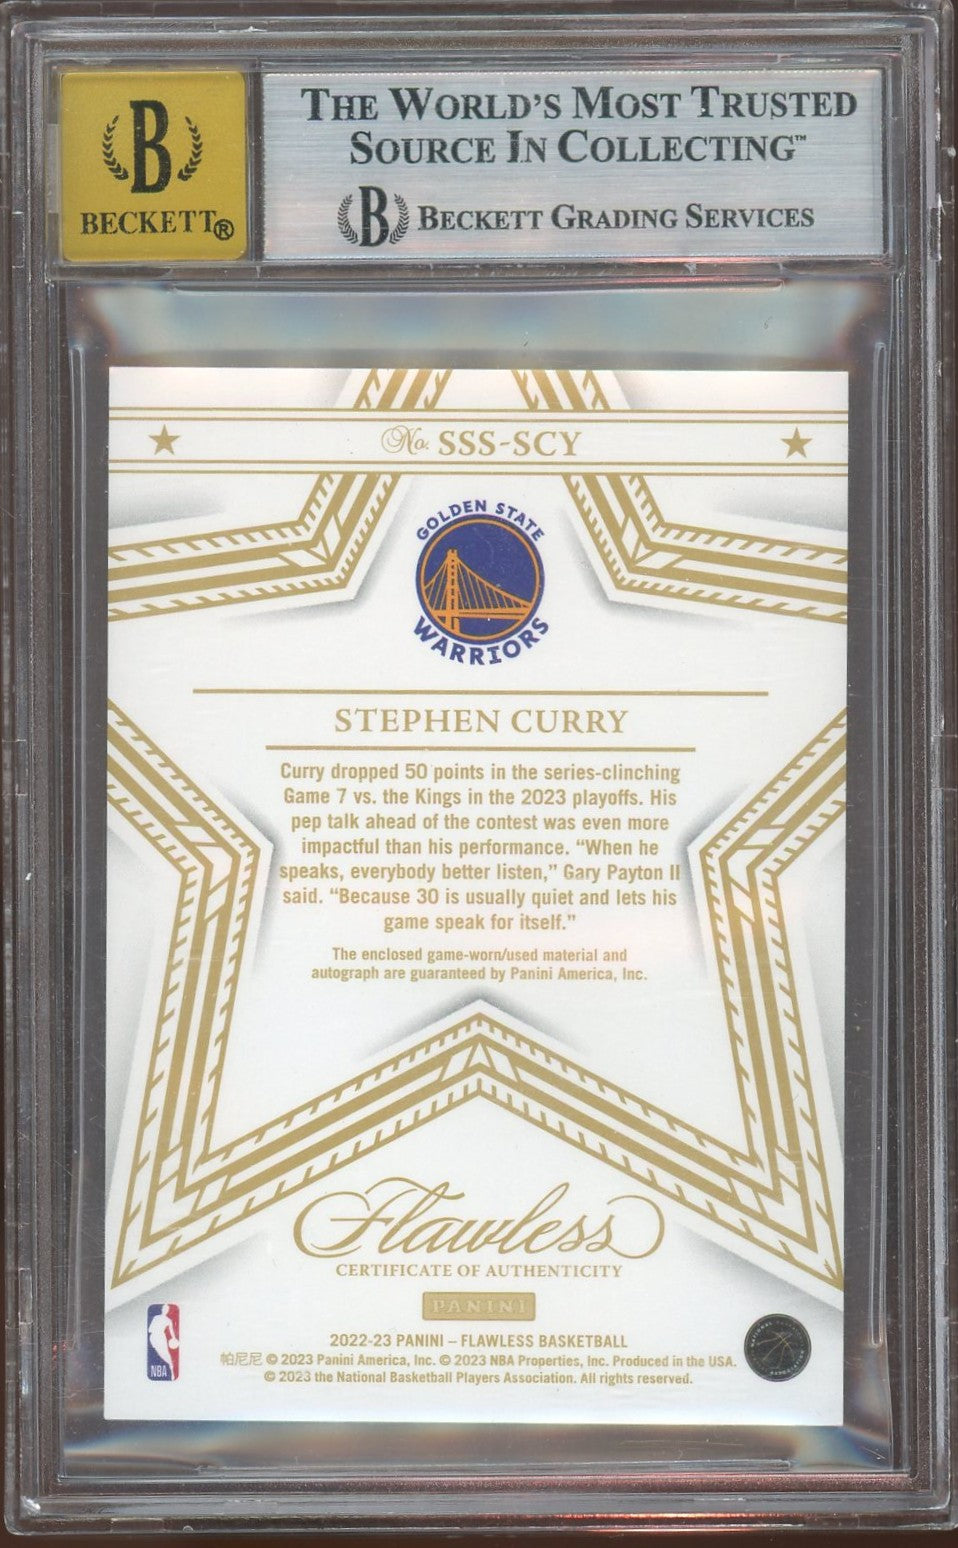 THE WORLD'S MOST TRUSTED
SOURCE IN COLLECTING™
B
BECKETT®
B BECKETT GRADING SERVICES
No. SSS-SCY
GOLDEN STATE
WARRIORS
STEPHEN CURRY
Curry dropped 50 points in the series-clinching
Game 7 vs. the Kings in the 2023 playoffs. His
pep talk ahead of the contest was even more
impactful than his performance. “When he
speaks, everybody better listen,” Gary Payton II
said. “Because 30 is usually quiet and lets his
game speak for itself.”
The enclosed game-worn/used material and
autograph are guaranteed by Panini America, Inc.
Flawless
CERTIFICATE OF AUTHENTICITY
PANINI
2022-23 PANINI – FLAWLESS BASKETBALL
帕尼尼 © 2023 Panini America, Inc. © 2023 NBA Properties, Inc. Produced in the USA.
© 2023 the National Basketball Players Association. All rights reserved.
NBA